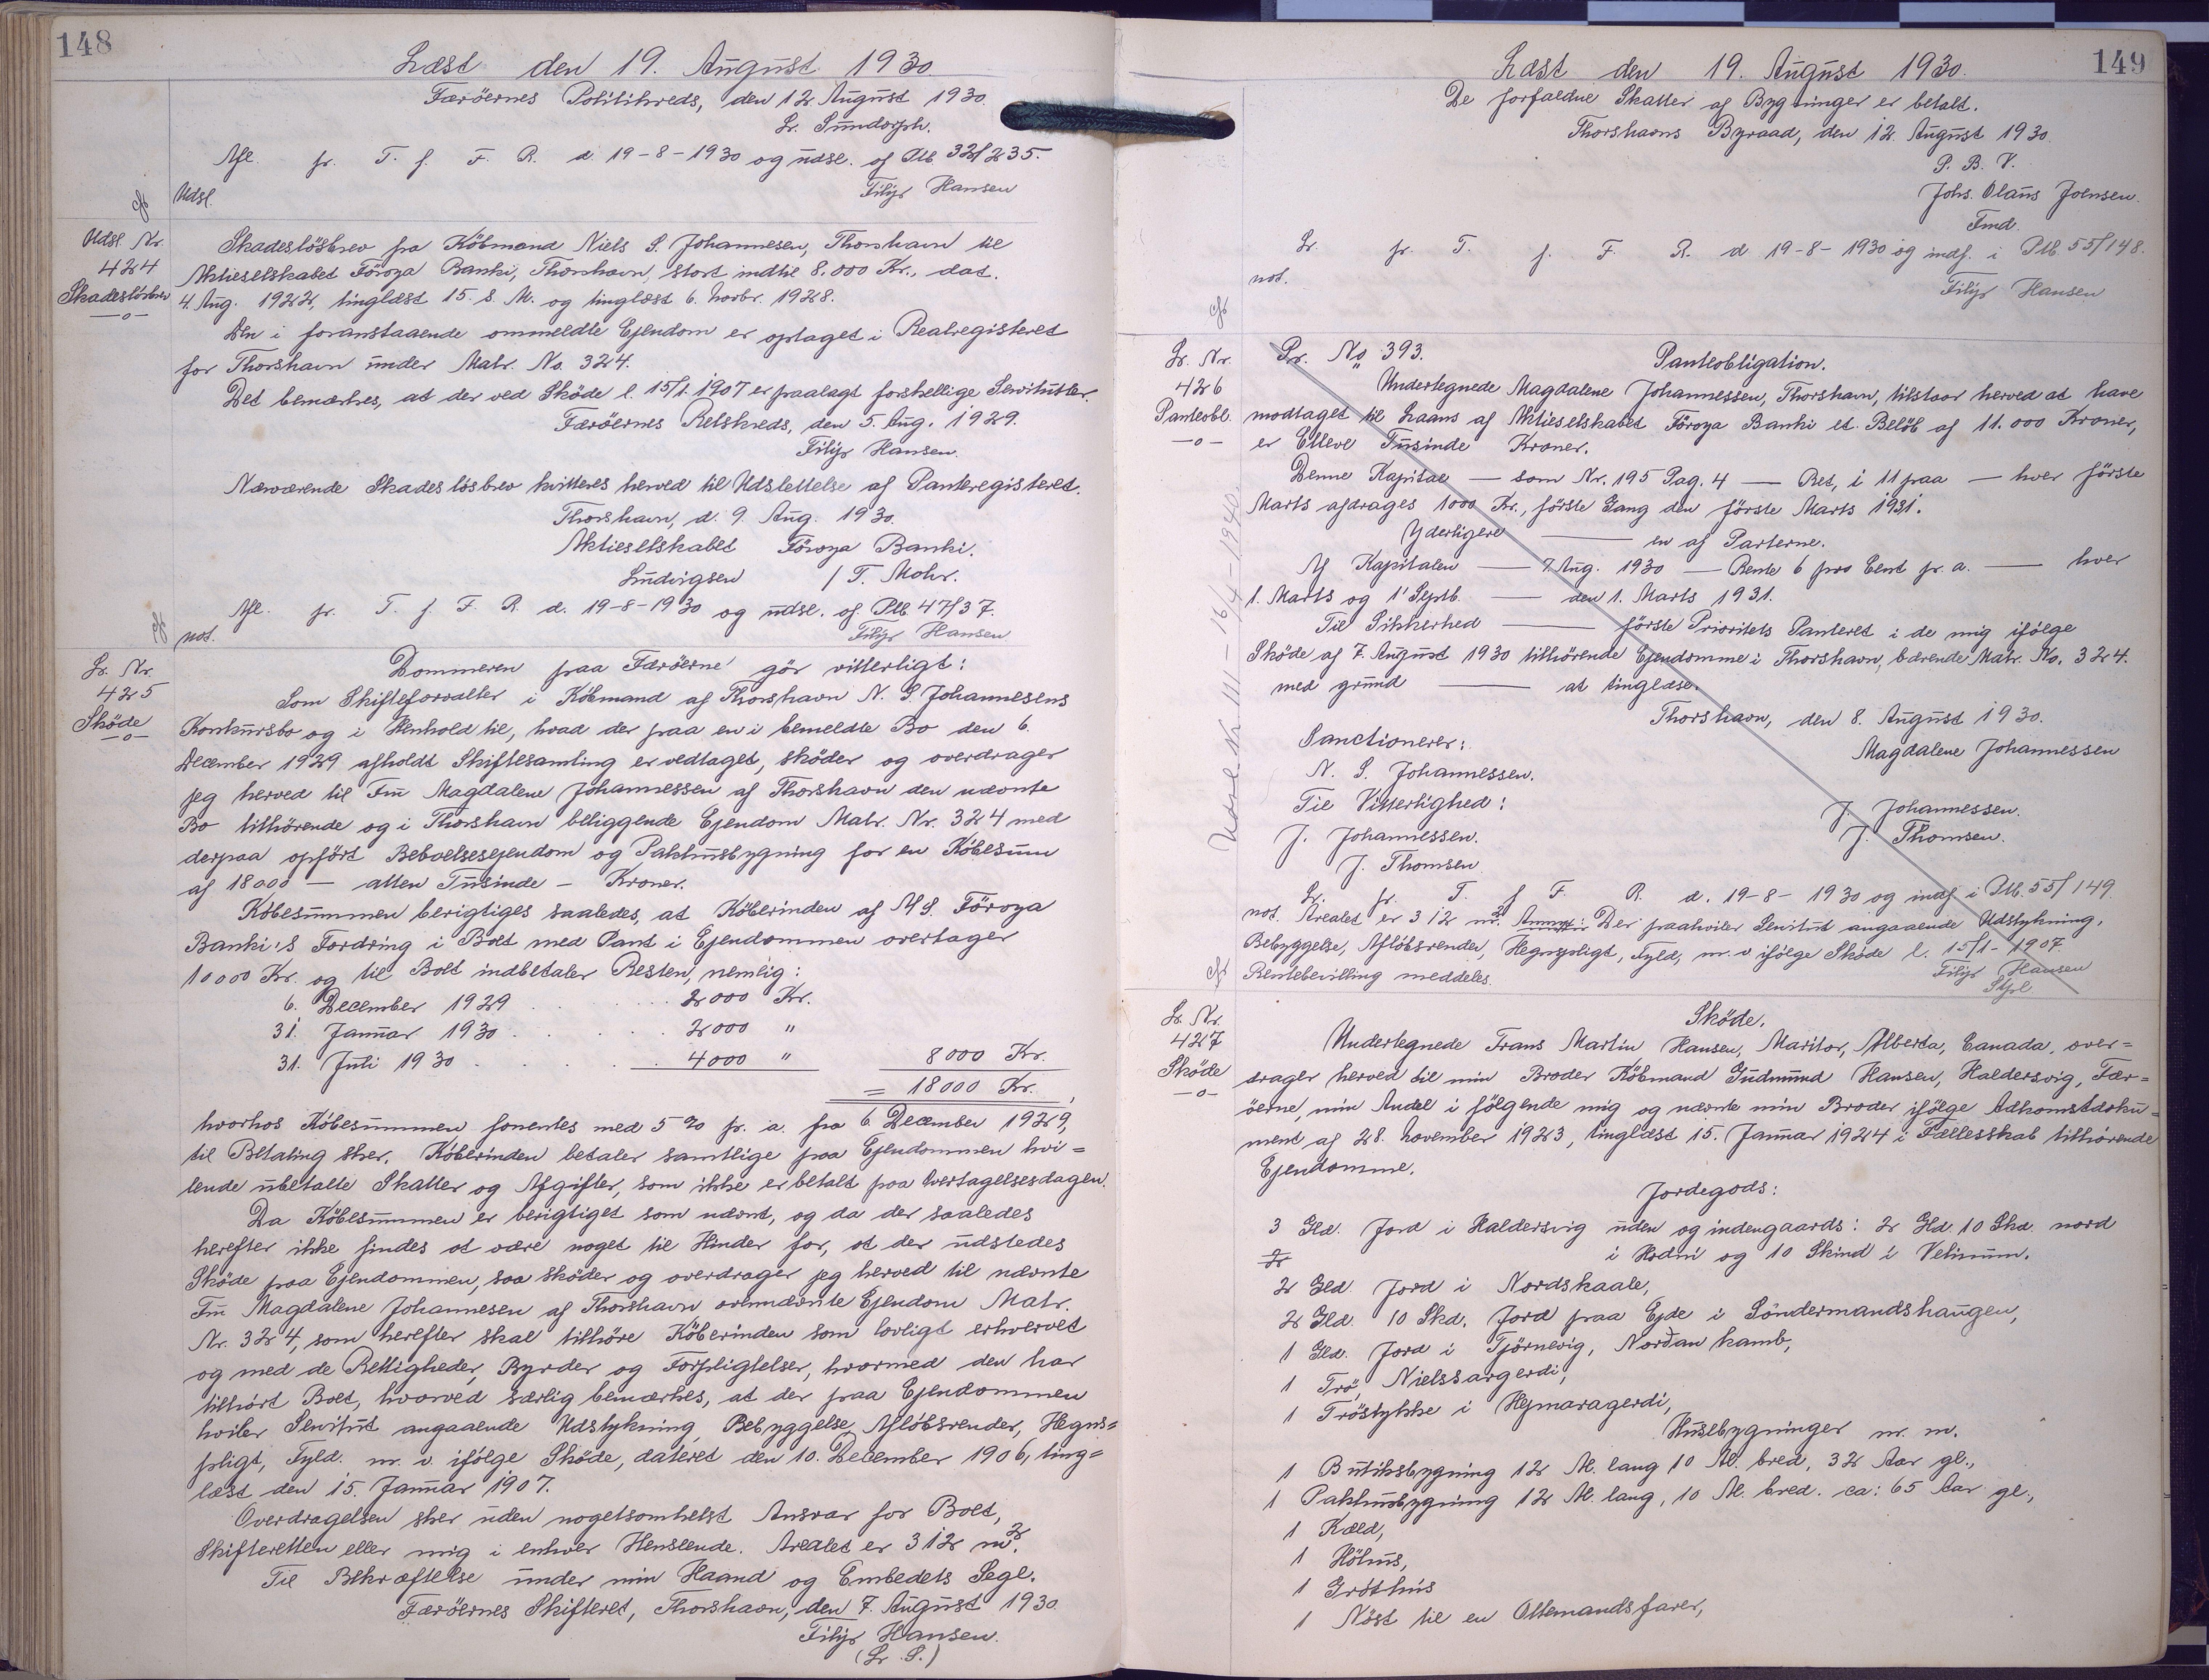 148
Læst den 19. August 1930.
Færöernes Politikreds, den 12 August 1930.
Afl. fr. T. f. F. R. d 19-8-1930 og udsl. af Ptb 32/235.
Udsl. Filip Hansen
Udsl. Nr.
424
Skadeslösbrev
—o—
Skadeslösbrev fra Köbmand Niels S. Johannesen, Thorshavn til
Aktieselskabet Föroya Banki, Thorshavn, stort indtil 8.000 Kr., dat.
4. Aug. 1922, tinglæst 15. s. M. og tinglæst 6. Novbr. 1928.
Den i foranstaaende ommeldte Ejendom er optaget i Realregisteret
for Thorshavn under Matr. No. 324.
Det bemærkes, at der ved Sköde l. 15/1. 1907 er paalagt forskellige Servitutter.
Færöernes Retskreds, den 5. Aug. 1929.
Filip Hansen.
Nærværende Skadeslösbrev kvitteres herved til Udslettelse af Panteregisteret.
Thorshavn, d. 9. Aug. 1930.
Aktieselskabet Föroya Banki.
Ludvigsen / T. Mohr.
Afl. fr. T. f. F. R. d. 19-8-1930 og udsl. af Ptb. 47/37.
not. Filip Hansen
Lr. Nr.
425
Sköde
—o—
Dommeren paa Færöerne gör vitterligt:
Som Skifteforvalter i Köbmand af Thorshavn N. S. Johannesens
Konkursbo og i Henhold til, hvad der paa en i bemeldte Bo den 6.
December 1929 afholdt Skiftesamling er vedtaget, sköder og overdrager
jeg herved til Fru Magdalene Johannessen af Thorshavn den nævnte
Bo tilhörende og i Thorshavn beliggende Ejendom Matr. Nr. 324 med
derpaa opfört Beboelsesejendom og Pakhusbygning for en Köbesum
af 18000 — atten Tusinde — Kroner.
Köbesummen berigtiges saaledes, at Köberinden af A/S. Föroya
Banki's Fordring i Boet med Pant i Ejendommen overtager
10000 Kr. og til Boet indbetaler Resten, nemlig:
6. December 1929 . . . 2000 Kr.
31. Januar 1930 . . . . 2000 "
31. Juli 1930 . . . . 4000 " 8000 Kr.
= 18000 Kr.,
hvorhos Köbesummen forrentes med 5 % pr. a. fra 6. December 1929,
til Betaling sker. Köberinden betaler samtlige paa Ejendommen hvi=
lende ubetalte Skatter og Afgifter, som ikke er betalt paa Overtagelsesdagen.
Da Köbesummen er berigtiget som nævnt, og da der saaledes
herefter ikke findes at være noget til Hinder for, at der udstedes
Sköde paa Ejendommen, saa sköder og overdrager jeg herved til nævnte
Fru Magdalene Johannesen af Thorshavn ovennævnte Ejendom Matr.
Nr. 324, som herefter skal tilhöre Köberinden som lovligt erhvervet
og med de Rettigheder, Byrder og Forpligtelser, hvormed den har
tilhört Boet, hvorved særlig bemærkes, at der paa Ejendommen
hviler Servitut angaaende Udstykning, Bebyggelse, Aflöbsrender, Hegns=
pligt, Fyld. m. v. ifölge Sköde, dateret den 10. December 1906, ting=
læst den 15. Januar 1907.
Overdragelsen sker uden nogetsomhelst Ansvar for Boet,
Skifteretten eller mig i enhver Henseende. Arealet er 312 m².
Til Bekræftelse under min Haand og Embedets Segl.
Færöernes Skifteret, Thorshavn, den 7. August 1930.
Filip Hansen.
(L. S.)
149
Læst den 19. August 1930.
De forfaldne Skatter af Bygninger er betalt.
Thorshavns Byraad, den 12. August 1930.
P. B. V.
Johs. Olaus Joensen.
Fmd.
Lr. fr. T. f. F. R. d 19-8-1930 og indf. i Ptb. 55/148.
not. Filip Hansen
Lr. Nr.
426
Panteobl.
—o—
Udsl. Nr. 111 - 16/4 - 1940
Pr. No 393. Panteobligation.
Undertegnede Magdalene Johannessen, Thorshavn, tilstaar herved at have
modtaget til Laans af Aktieselskabet Föroya Banki et Belöb af 11.000 Kroner,
er Elleve Tusinde Kroner.
Denne Kapital — som Nr. 195 Pag. 4 — Ret, i 11 paa — hver förste
Marts afdrages 1000 Kr., förste Gang den förste Marts 1931.
Yderligere — en af Parterne.
Af Kapitalen — 7. Aug. 1930 — Rente 6 pro Cent pr. a. — hver
1. Marts og 1' Septb. — den 1. Marts 1931.
Til Sikkerhed — förste Prioritets Panteret i de mig ifölge
Sköde af 7. August 1930 tilhörende Ejendomme i Thorshavn, bærende Matr. No. 324.
med grund — at tinglæse.
Thorshavn, den 8. August 1930.
Sanctionerer: Magdalene Johannessen
N. S. Johannessen.
Til Vitterlighed:
J. Johannessen. J. Johannessen.
J. Thomsen J. Thomsen.
Lr. fr. T. f F. R. d. 19-8-1930 og indf i Ptb. 55/149.
not. Arealet er 312 m². Anmk: Der paahviler Servitut angaaende Udstykning,
Bebyggelse, Aflöbsrender, Hegnspligt, Fyld, m. v ifölge Sköde l. 15/1-1907.
Rentebevilling meddeles. Filip Hansen
Lr. Nr.
427
Sköde
—o—
Sköde.
Undertegnede Frans Martin Hansen, Alberta, Canada, over=
drager herved til min Broder Köbmand Gudmund Hansen, Haldersvig, Fær=
öerne, min Andel i fölgende mig og nævnte min Broder ifölge Adkomstdoku=
ment af 28. November 1923, tinglæst 15. Januar 1924 i Fællesskab tilhörende
Ejendomme.
Jordegods:
3 Gld. Jord i Haldersvig uden og indengaards: 2 Gld. 10 Skd. nord
i og 10 Skind i
2 Gld. Jord i Nordskaale,
2 Gld. 10 Skd. Jord paa Ejde i Söndermandshaugen,
1 Gld. Jord i Tjörnevig, Norðan kamb,
1 Trö, Nielssargerdi,
1 Tröstykke i Hejmaragerdi,
Husebygninger m. m.
1 Butiksbygning 12 Al. lang 10 Al. bred, 32 Aar gl.,
1 Pakhusbygning 12 Al. lang, 10 Al. bred. ca: 65 Aar gl.,
1 Kæld,
1 Höhus,
1 Gróthús
1 Nöst til en Ottemandsfarer,